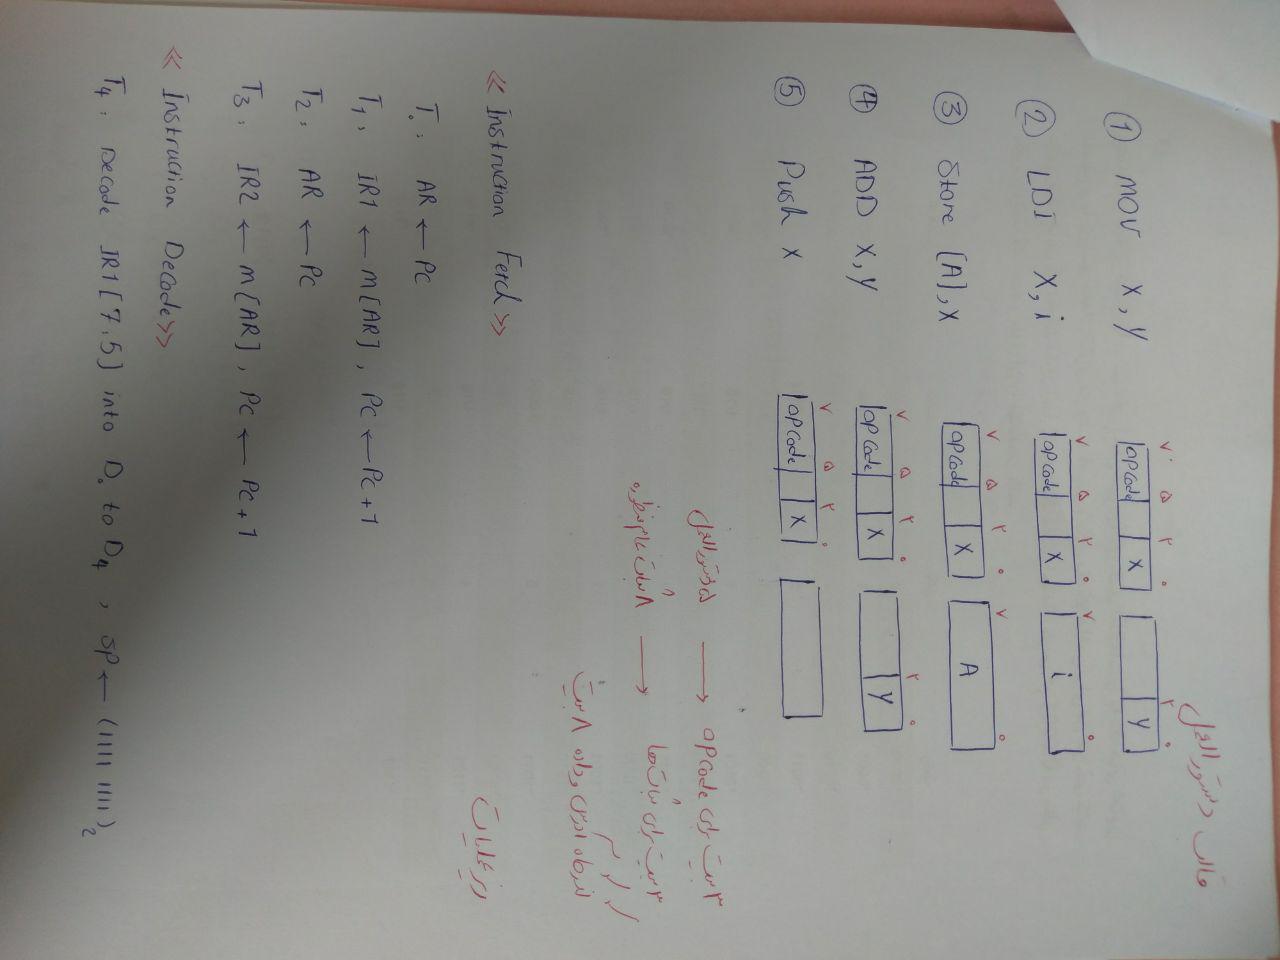 قالب دستورالعمل
① MOV X, Y ۷ ۵ ۲ ۰ opcode X ۲ ۰ Y
② LDI X, i ۷ ۵ ۲ ۰ opcode X ۷ ۰ i
③ Store [A], X ۷ ۵ ۲ ۰ opcode X ۷ ۰ A
④ ADD X, Y ۷ ۵ ۲ ۰ opcode X ۲ ۰ Y
⑤ Push X ۷ ۵ ۲ ۰ opcode X
۳ بیت برای opcode → ۵ دستورالعمل
۳ بیت برای ثبات ها → ۸ ثبات عام منظوره
گذرگاه آدرس و داده ۸ بیت
« Instruction Fetch »
ریز عملیات
T₀: AR ← PC
T₁: IR1 ← M[AR], PC ← PC + 1
T₂: AR ← PC
T₃: IR2 ← M[AR], PC ← PC + 1
« Instruction Decode »
T₄: Decode IR1[7:5] into D₀ to D₄, SP ← (1111 1111)₂